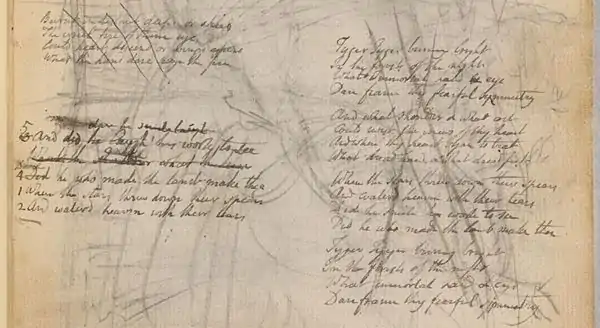 Burnt in distant deeps or skies
The cruel fire of thine eye
Could heart descend or wings aspire
What the hand dare sieze the fire
dare he smile laugh
5 3 And did he laugh his work to see
What the shoulder what the knee
4 Did he who made the lamb make thee
1 When the stars threw down their spears
2 And waterd heaven with their tears
Tyger Tyger burning bright
In the forests of the night
What Immortal hand & eye
Dare frame thy fearful symmetry
And what shoulder & what art
Could twist the sinews of thy heart
And when thy heart began to beat
What dread hand & what dread feet
When the stars threw down their spears
And waterd heaven with their tears
Did he smile his work to see
Did he who made the lamb make thee
Tyger Tyger burning bright
In the forests of the night
What immortal hand & eye
Dare frame thy fearful symmetry